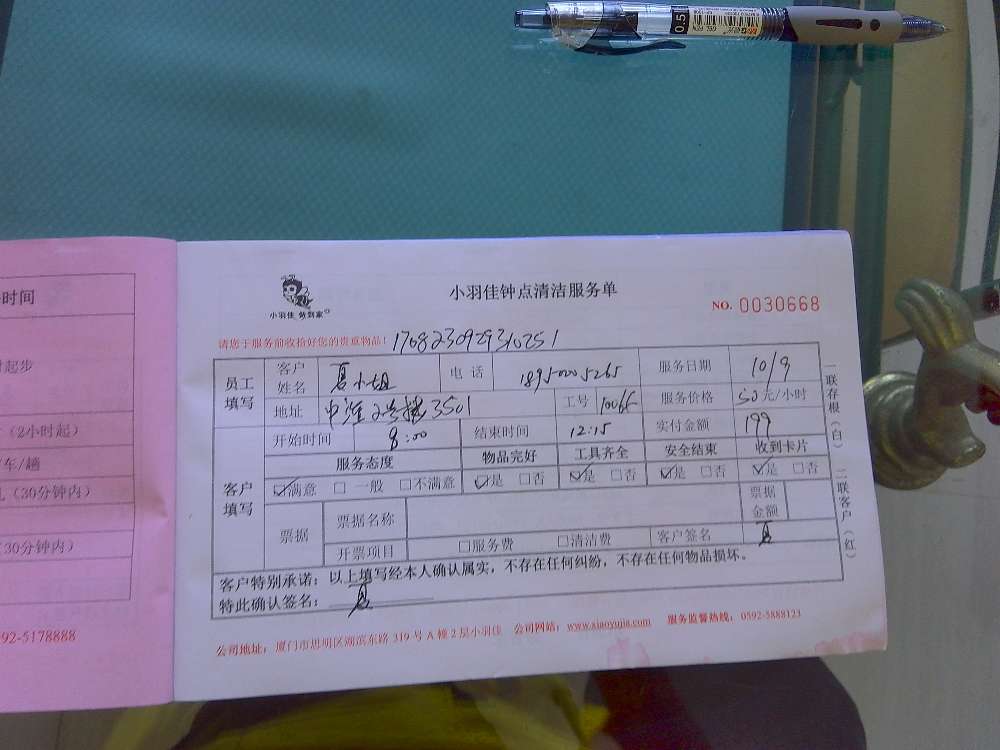 小羽佳钟点清洁服务单
小羽佳 做到家
NO. 0030668
请您于服务前收拾好您的贵重物品！
员工填写 客户姓名 夏小姐 电话 18950005265 服务日期 10/9
地址 3501 工号 服务价格 50元/小时
开始时间 8:00 结束时间 12:15 实付金额 199
服务态度 物品完好 工具齐全 安全结束 收到卡片
客户填写 ☑满意 □一般 □不满意 ☑是 □否 ☑是 □否 ☑是 □否 ☑是 □否
票据 票据名称 票据金额
开票项目 □服务费 □清洁费 客户签名 夏
客户特别承诺：以上填写经本人确认属实，不存在任何纠纷，不存在任何物品损坏。
特此确认签名：夏
公司地址：厦门市思明区湖滨东路 319 号 A 幢 2 层小羽佳 公司网站：www.xiaoyujia.com 服务监督热线：0592-5888123
一联存根（白） 二联客户（红）
时间
时起步
（2小时起）
车/趟
（30分钟内）
（30分钟内）
92-5178888
0.5